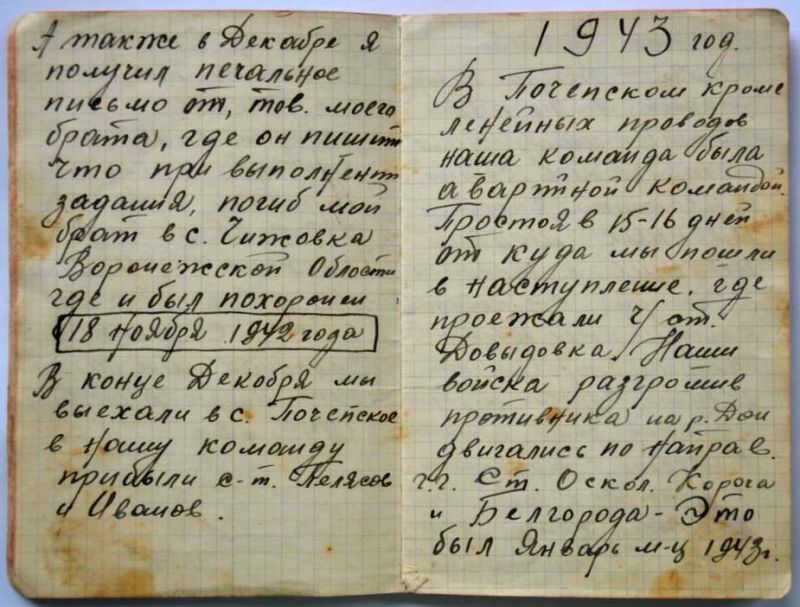 А также в Декабре я
получил печальное
письмо от, тов. моего
брата, где он пишит
что при выполнении
задания, погиб мой
брат в с. Чижовка
Воронежской Области
где и был похоронен
18 Ноября 1942 года
В конце Декобря мы
выехали в с. Почепское
в Нашу команду
прибыли с-т. Пелясов
и Иванов.
1943 год.
В Почепском кроме
ленейных проводов
наша команда была
аварийной командой.
Простояв 15-16 дней
от куда мы пошли
в наступление, где
проежали ч/ ст.
Довыдовка. Наши
войска разгромив
противника на р. Дон
двигались по Направ.
г.г. Ст. Оскол. Короча
и Белгорода - Это
был Январь м-ц 1943г.